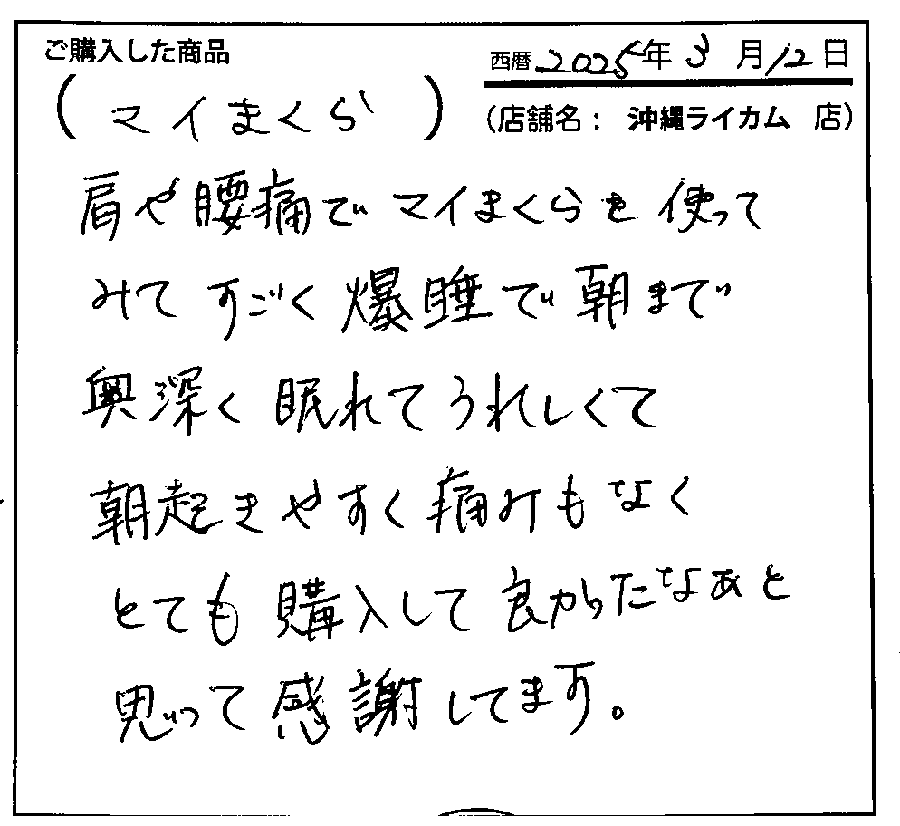 ご購入した商品
西暦 2025年 3月12日
(マイまくら)
(店舗名： 沖縄ライカム 店)
肩や腰痛でマイまくらを使って
みてすごく爆睡で朝まで
奥深く眠れてうれしくて
朝起きやすく痛みもなく
とても購入して良かったなぁと
思って感謝してます。